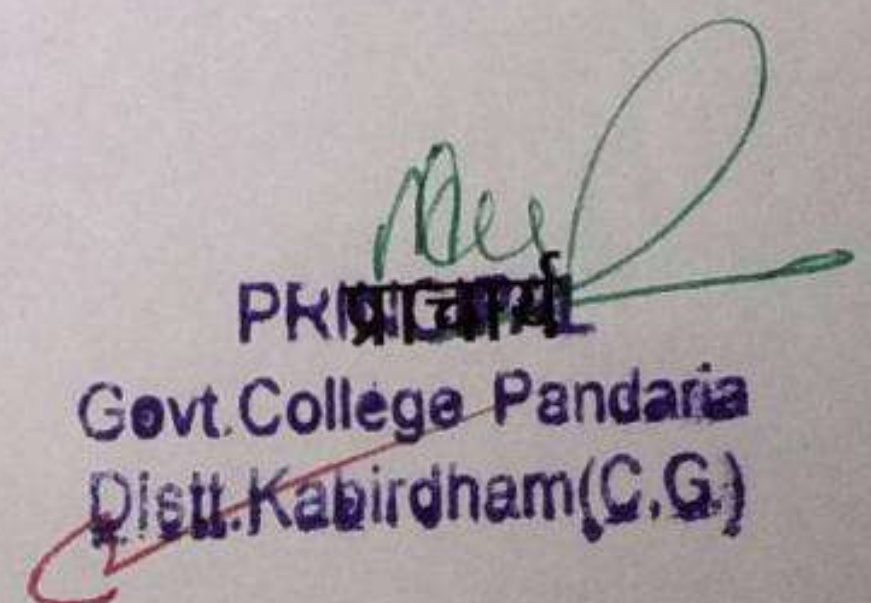 PRINCIPAL
प्राचार्य
Govt.College Pandaria
Distt.Kabirdham(C.G.)